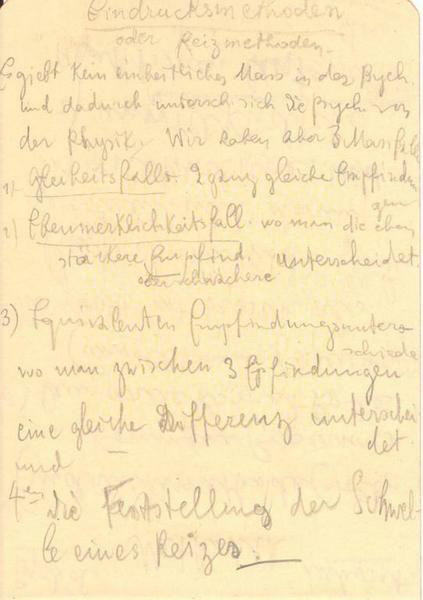 Eindrucksmethoden
oder Reizmethoden.
Es giebt kein einheitliches Mass in der Psych.
und dadurch untersch. sich die Psych. von
der Physik. Wir haben aber 3 Massfälle
1) Gleiheitsfall. 2 ganz gleiche Empfindun
gen
2) Ebenmerklichkeitsfall. wo man die eben
stärkere Empfind. unterscheidet.
oder schwächere
3) Equivalenten Empfindungsunter=
schiede
wo man zwischen 3 Epfindungen
eine gleiche Differenz unterschei
det.
und
4 die Feststellung der Schwel-
le eines Reizes.